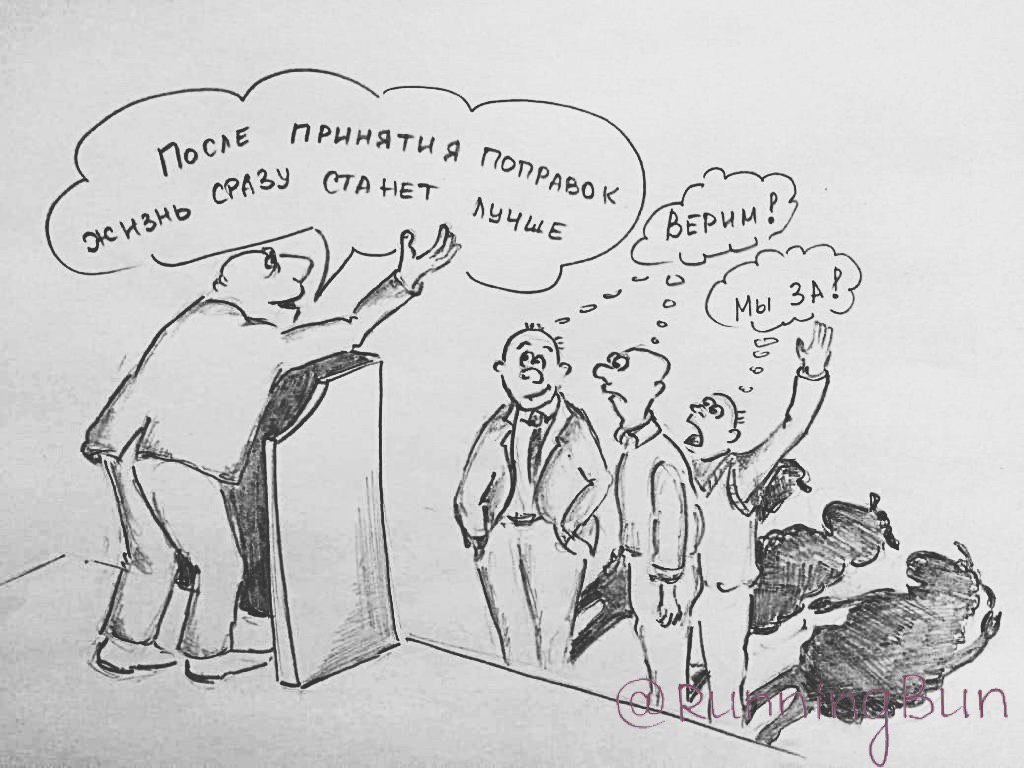 После принятия поправок
жизнь сразу станет лучше
Верим!
Мы за!
@RunningBun